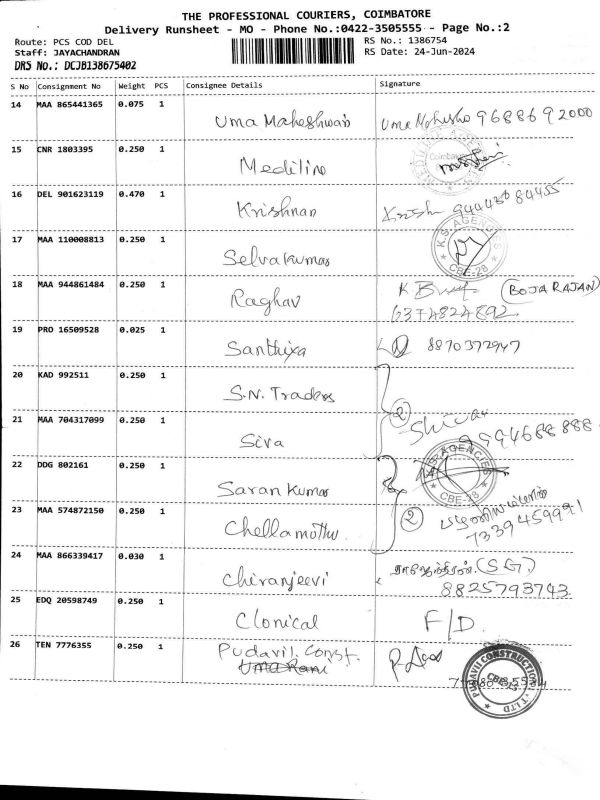 THE PROFESSIONAL COURIERS, COIMBATORE
Delivery Runsheet - MO - Phone No.:0422-3505555 - Page No.:2
Route: PCS COD DEL
RS No.: 1386754
Staff: JAYACHANDRAN
RS Date: 24-Jun-2024
DRS No.: DCJB138675402
S No Consignment No Weight PCS Consignee Details Signature
14 MAA 865441365 0.075 1 Uma Maheshwari Uma 9688692000
15 CNR 1803395 0.250 1 Mediline
16 DEL 901623119 0.470 1 Krishnan Krish
K.S. AGENCIES
CBE-28
17 MAA 110008813 0.250 1 Selvakumar
18 MAA 944861484 0.250 1 Raghav K (BOJARAJAN)
6374824892
19 PRO 16509528 0.025 1 Santhiya 8870372947
20 KAD 992511 0.250 1 S.N. Traders
21 MAA 704317099 0.250 1 Siva 2 9994688888
22 DDG 802161 0.250 1 Saran Kumar
K.S. AGENCIES
CBE-28
23 MAA 574872150 0.250 1 Chellamothu 2
7339459991
24 MAA 866339417 0.030 1 Chiranjeevi (SG)
8825793743
25 EDQ 20598749 0.250 1 Clonical F/D
26 TEN 7776355 0.250 1 Pudavil. Const.
Uma Rani